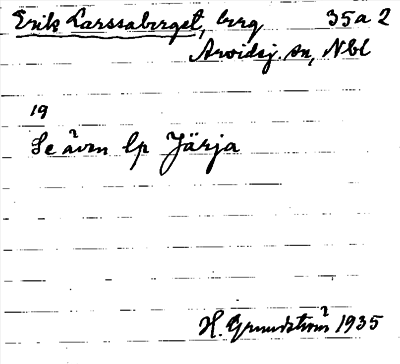 Erik Larssaberget, berg 35a2
Arvidsj. sn, Nbl
19
Se även lp Järja
H. Grundström 1935